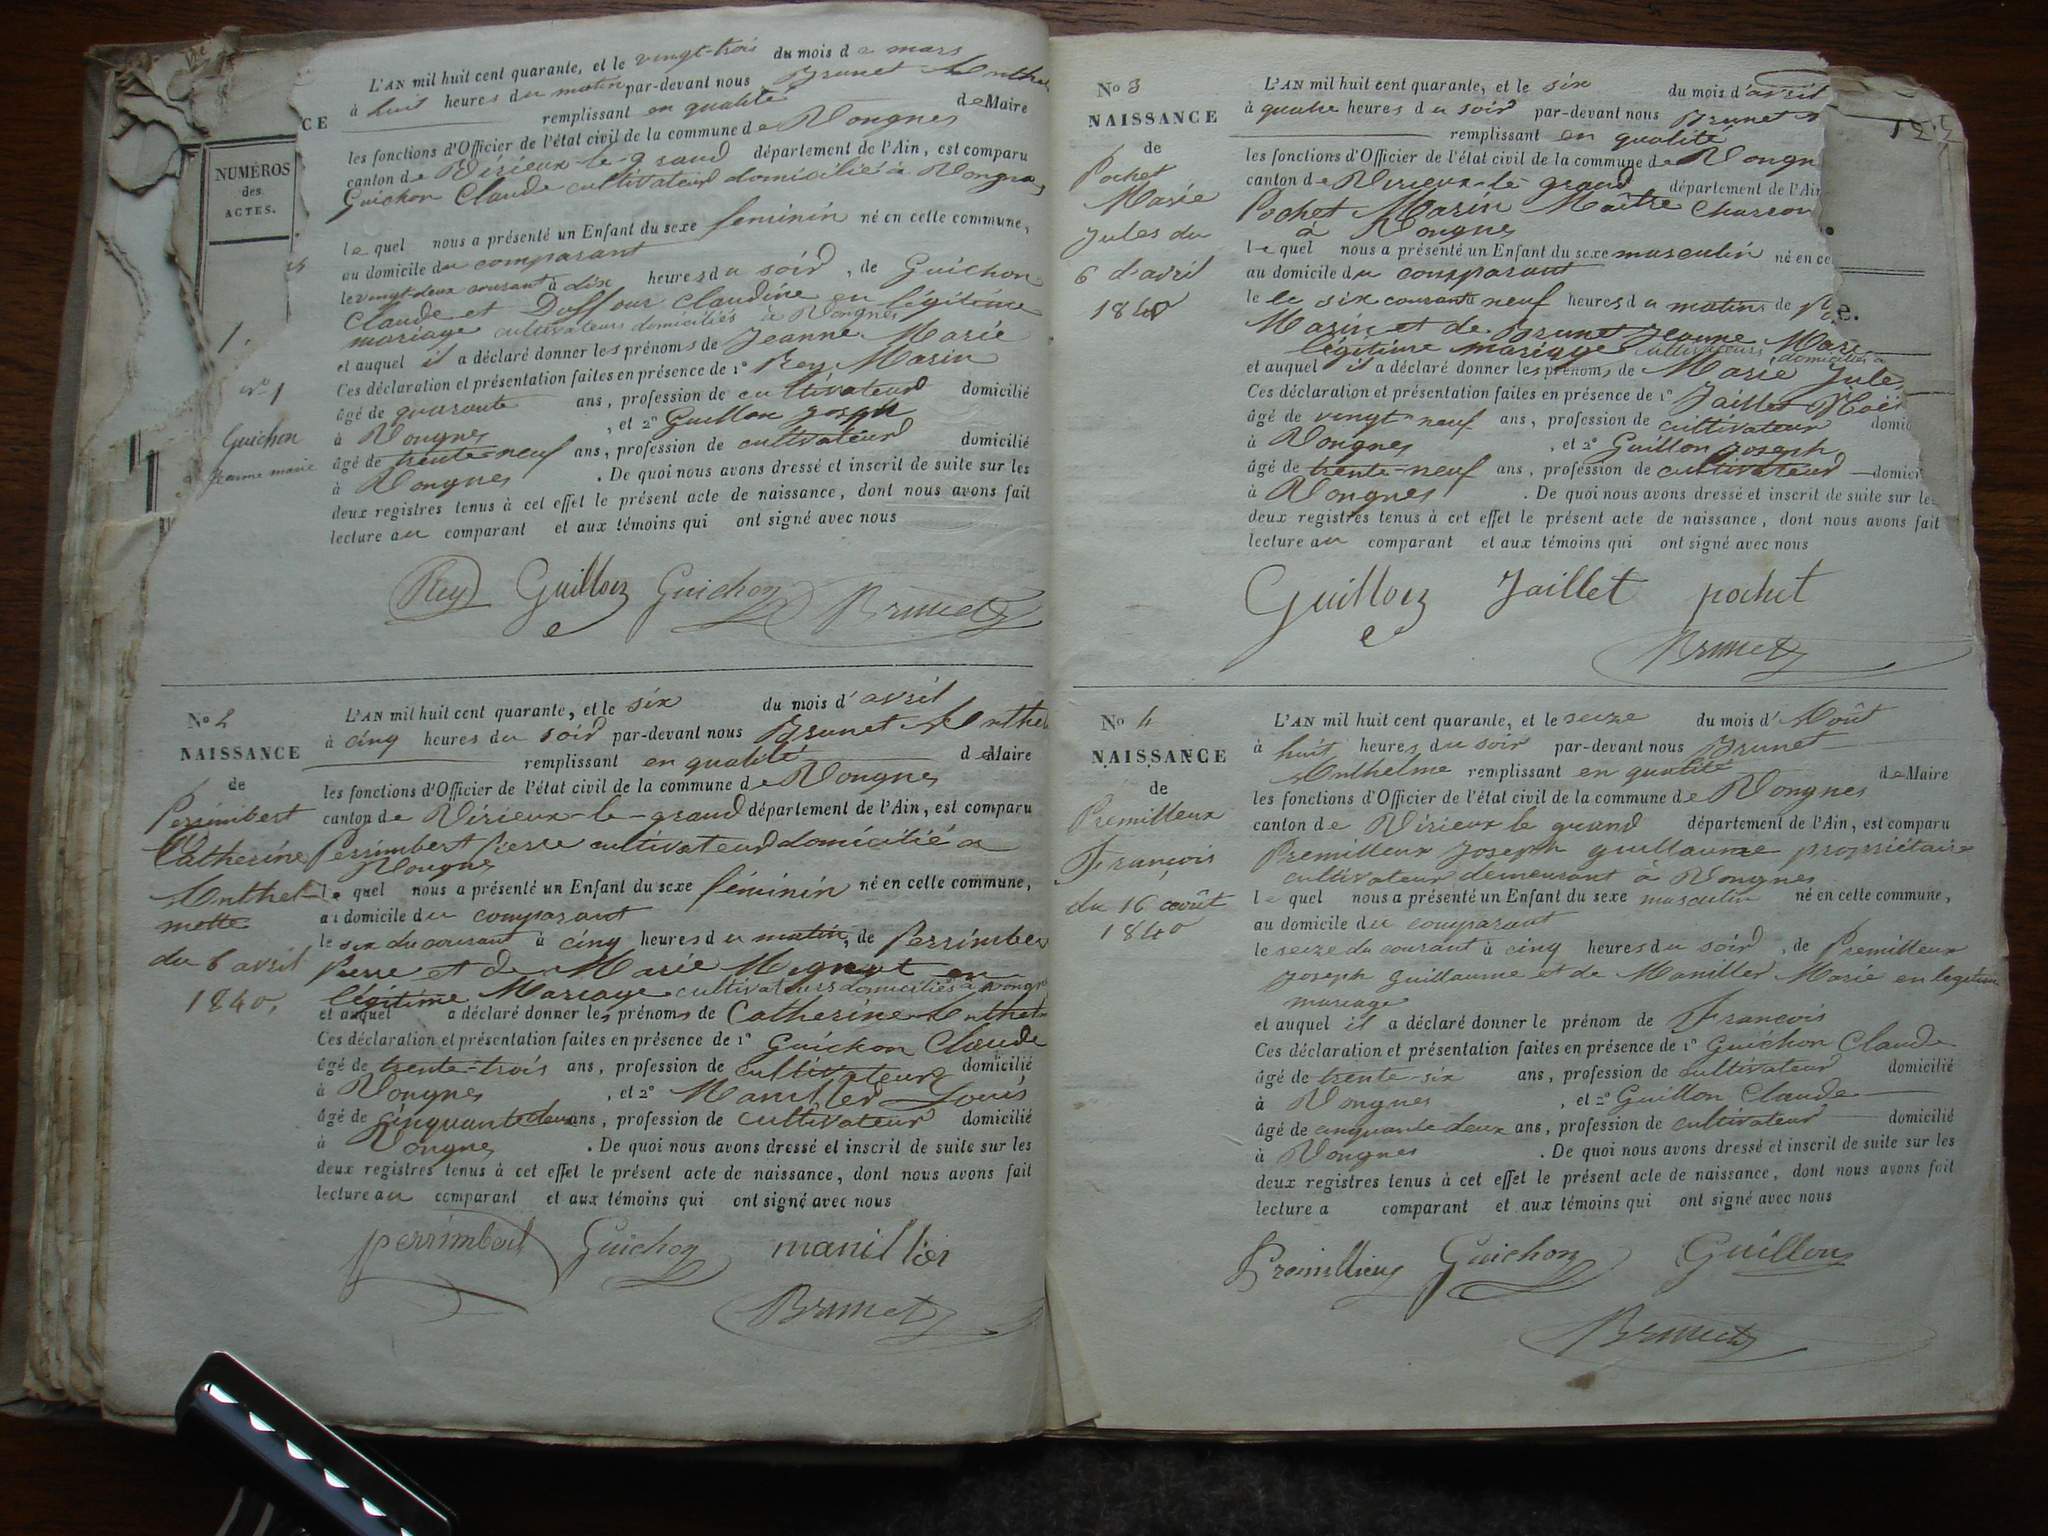 NUMÉROS
des
ACTES.
CE
L'AN mil huit cent quarante, et le vingt-trois du mois de mars
à huit heures du matin par-devant nous Brunet Anthel
remplissant en qualité de Maire
les fonctions d'Officier de l'état civil de la commune de Vongnes
canton de Virieux-le-grand département de l'Ain, est comparu
Guichon Claude cultivateur domicilié à Vongnes
lequel nous a présenté un Enfant du sexe feminin né en cette commune,
au domicile du comparant
le vingt-deux courant à dix heures du soir, de Guichon
Claude et Duffour Claudine en légitime
mariage cultivateurs domiciliés à Vongnes
et auquel il a déclaré donner les prénoms de Jeanne Marie
Ces déclaration et présentation faites en présence de 1º Rey Marin
âgé de quarante ans, profession de cultivateur domicilié
à Vongnes, et 2º Guillon Joseph
âgé de trente-neuf ans, profession de cultivateur domicilié
à Vongnes. De quoi nous avons dressé et inscrit de suite sur les
deux registres tenus à cet effet le présent acte de naissance, dont nous avons fait
lecture au comparant et aux témoins qui ont signé avec nous
nº 1
Guichon
Jeanne marie
Rey Guillon Guichon Brunet
Nº 2
NAISSANCE
de
Perrimbert
Catherine
Anthel-
mette
du 6 avril
1840.
L'AN mil huit cent quarante, et le six du mois d'avril
à cinq heures du soir par-devant nous Brunet Anthel
remplissant en qualité de Maire
les fonctions d'Officier de l'état civil de la commune de Vongnes
canton de Virieux-le-grand département de l'Ain, est comparu
Perrimbert Pierre cultivateur domicilié à
Vongnes
lequel nous a présenté un Enfant du sexe féminin né en cette commune,
au domicile du comparant
le six du courant à cinq heures du matin, de Perrimber
Pierre et de Marie Mognot en
légitime Mariage cultivateurs domiciliés à Vongn
et auquel a déclaré donner les prénoms de Catherine Anthel
Ces déclaration et présentation faites en présence de 1º Guichon Claude
âgé de trente-trois ans, profession de cultivateur domicilié
à Vongnes, et 2º Manillier Louis
âgé de cinquante deux ans, profession de cultivateur domicilié
à Vongnes. De quoi nous avons dressé et inscrit de suite sur les
deux registres tenus à cet effet le présent acte de naissance, dont nous avons fait
lecture au comparant et aux témoins qui ont signé avec nous
perrimbert Guichon manillier
Brunet
Nº 3
NAISSANCE
de
Pochet
Marie
Jules du
6 d'avril
1840
L'AN mil huit cent quarante, et le six du mois d'avril
à quatre heures du soir par-devant nous Brunet
remplissant en qualité
les fonctions d'Officier de l'état civil de la commune de Vongn
canton de Virieux-le-grand département de l'Ain
Pochet Marin Maître Charron
à Vongnes
lequel nous a présenté un Enfant du sexe masculin né en ce
au domicile du comparant
le le six courant à neuf heures du matin de
Marin et de Brunet Jeanne Marie
légitime mariage cultivateurs domiciliés à
et auquel il a déclaré donner les prénoms de Marie Jule
Ces déclaration et présentation faites en présence de 1º Jaillet Noë
âgé de vingt neuf ans, profession de cultivateur domic
à Vongnes, et 2º Guillon Joseph
âgé de trente-neuf ans, profession de cultivateur domici
à Vongnes. De quoi nous avons dressé et inscrit de suite sur le
deux registres tenus à cet effet le présent acte de naissance, dont nous avons fait
lecture au comparant et aux témoins qui ont signé avec nous
Guillon Jaillet pochet
Brunet
Nº 4
NAISSANCE
de
Premilleux
François
du 16 août
1840
L'AN mil huit cent quarante, et le seize du mois d'Août
à huit heures du soir par-devant nous Brunet
Anthelme remplissant en qualité de Maire
les fonctions d'Officier de l'état civil de la commune de Vongnes
canton de Virieux le grand département de l'Ain, est comparu
Premilleux Joseph guillaume propriétaire
cultivateur demeurant à Vongnes
lequel nous a présenté un Enfant du sexe masculin né en cette commune,
au domicile du comparant
le seize du courant à cinq heures du soir, de Premilleux
Joseph Guillaume et de Manillier Marie en legitim
mariage
et auquel il a déclaré donner le prénom de François
Ces déclaration et présentation faites en présence de 1º Guichon Claude
âgé de trente-six ans, profession de cultivateur domicilié
à Vongnes, et 2º Guillon Claude
âgé de cinquante deux ans, profession de cultivateur domicilié
à Vongnes. De quoi nous avons dressé et inscrit de suite sur les
deux registres tenus à cet effet le présent acte de naissance, dont nous avons fait
lecture a comparant et aux témoins qui ont signé avec nous
Premillieux Guichon Guillon
Brunet